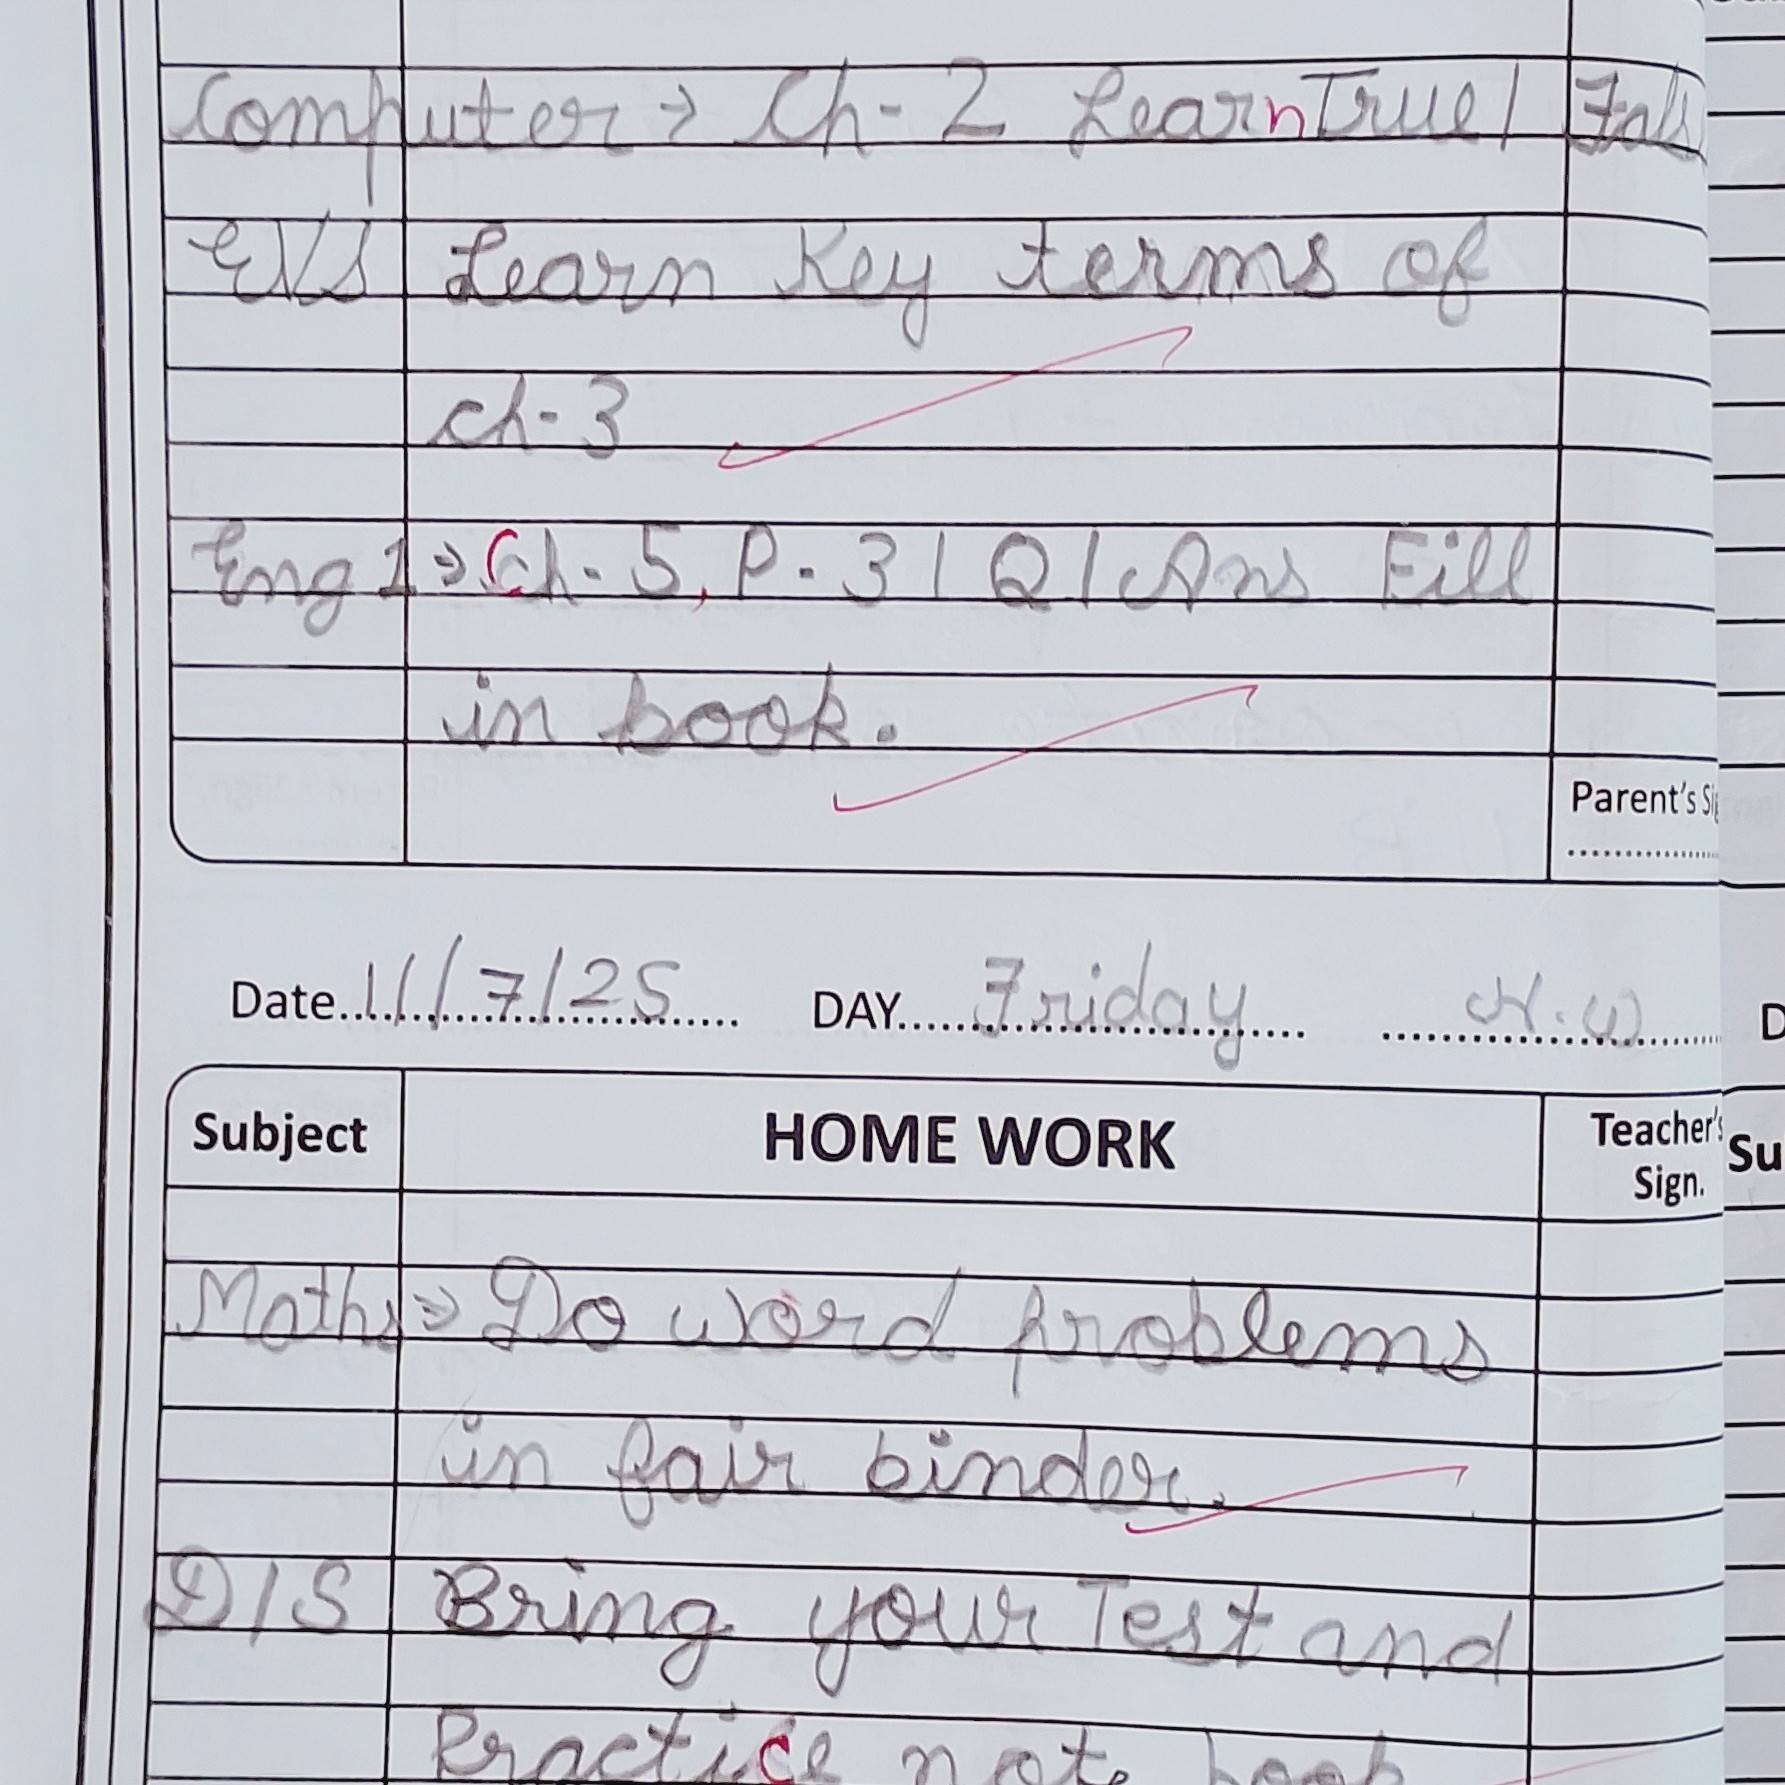 Computer → Ch-2 Learn True / Fals
EVS Learn Key terms of
ch-3
Eng 1 → Ch-5, P-31 Q/Ans Fill
in book.
Parent's Si
Date 11/7/25 DAY Friday H.W D
Subject HOME WORK Teacher's Su
Sign.
Maths → Do word problems
in fair binder.
D/S Bring your Test and
Practice note book